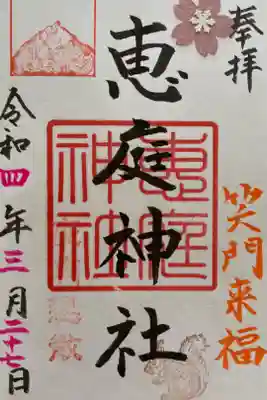 奉拝
笑門来福
恵庭神社
恵庭
神社
令和四年三月二十七日